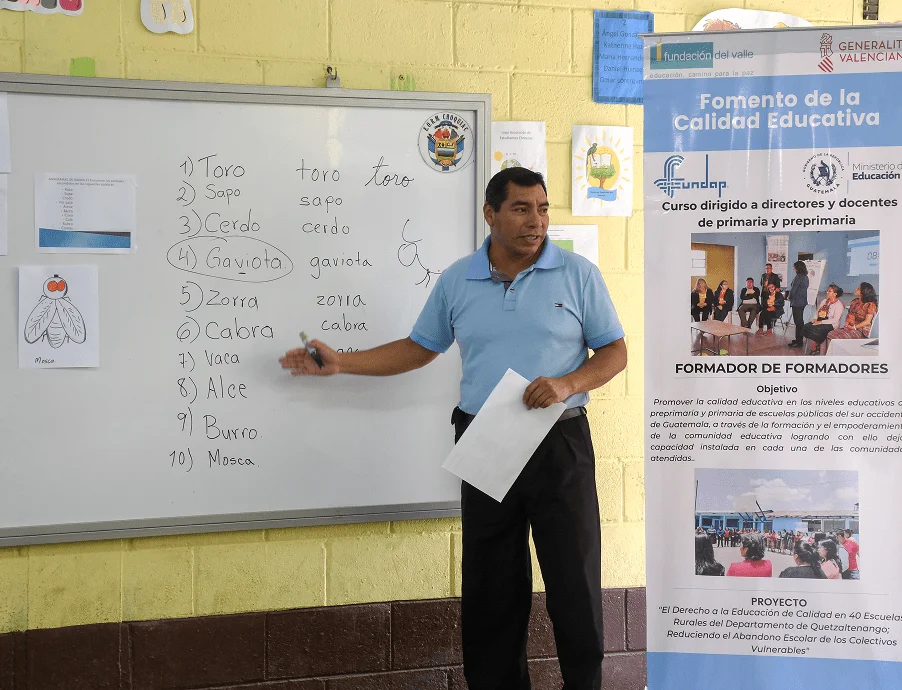 1) Toro toro toro
2) Sapo sapo
3) Cerdo cerdo
4) Gaviota gaviota
5) Zorra zorra
6) Cabra cabra
7) Vaca
8) Alce
9) Burro.
10) Mosca.
Mosca
fundación del valle
educación, camino para la paz
GENERALIT
VALENCIAN
Fomento de la
Calidad Educativa
Fundap
GUATEMALA
Ministerio de
Educación
Curso dirigido a directores y docentes
de primaria y preprimaria
FORMADOR DE FORMADORES
Objetivo
Promover la calidad educativa en los niveles educativos d
preprimaria y primaria de escuelas públicas del sur occident
de Guatemala, a través de la formación y el empoderamient
de la comunidad educativa logrando con ello deja
capacidad instalada en cada una de las comunidade
atendidas..
PROYECTO
"El Derecho a la Educación de Calidad en 40 Escuelas
Rurales del Departamento de Quetzaltenango;
Reduciendo el Abandono Escolar de los Colectivos
Vulnerables"